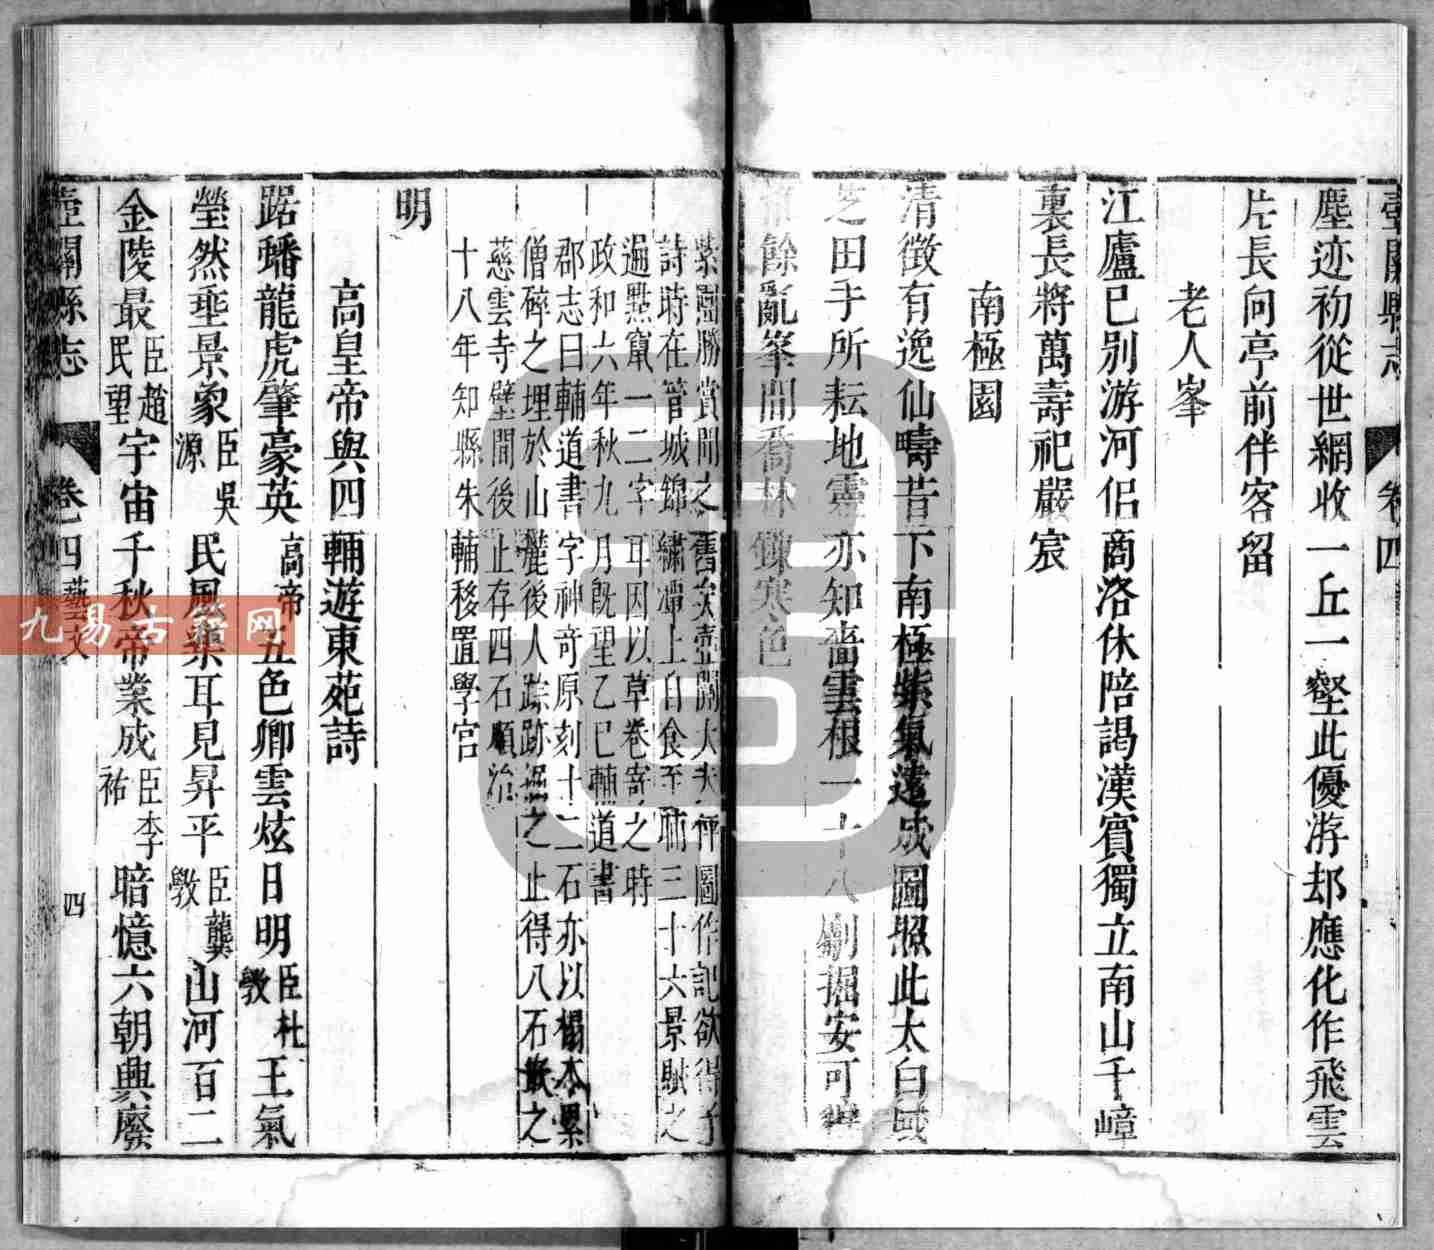 壺關縣志 卷四
塵迹初從世網收一丘一壑此優游却應化作飛雲
片長向亭前伴客留
老人峯
江廬已別游河侣商洛休陪謁漢賓獨立南山千嶂
裏長將萬壽祀嚴宸
南極園
清徵有逸仙疇昔下南極紫氣遶成圖照此太白域
芝田手所耘地靈亦知嗇雲根一十八劚掘安可
餘亂峯間喬林鎖寒色
紫團勝賞間之舊矣壺關大夫神圖作記欲得予
詩時在管城錦繡潭上自食至晡三十六景賦之
遍點竄一二字耳因以草卷寄之時
政和六年秋九月既望乙巳輔道書
郡志曰輔道書字神奇原刻十二石亦以榻本累
僧碎之埋於山麓後人踪跡掘之止得八石嵌之
慈雲寺壁間後止存四石順治
十八年知縣朱輔移置學宫
明
高皇帝與四輔遊東苑詩
踞蟠龍虎肇豪英高帝五色卿雲炫日明臣杜斆王氣
瑩然垂景象臣吳源民風樂耳見昇平臣龔斆山河百二
金陵最臣趙民望宇宙千秋帝業成臣李祐暗憶六朝興廢
壺關縣志 卷四藝文 四
九易古籍网